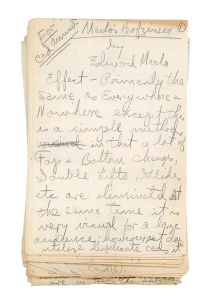 For
ccd annual
Marlo's Hofzinser ①
by
Edward Marlo
Effect – Primarily the
same as Everywhere &
Nowhere except this
is a simple method
in that a lot of
Top & Bottom Changes,
Double Lifts, Glides
etc are eliminated at
the same time it is
very visual for a large
audience; however, it does
utilize duplicate cards
are in